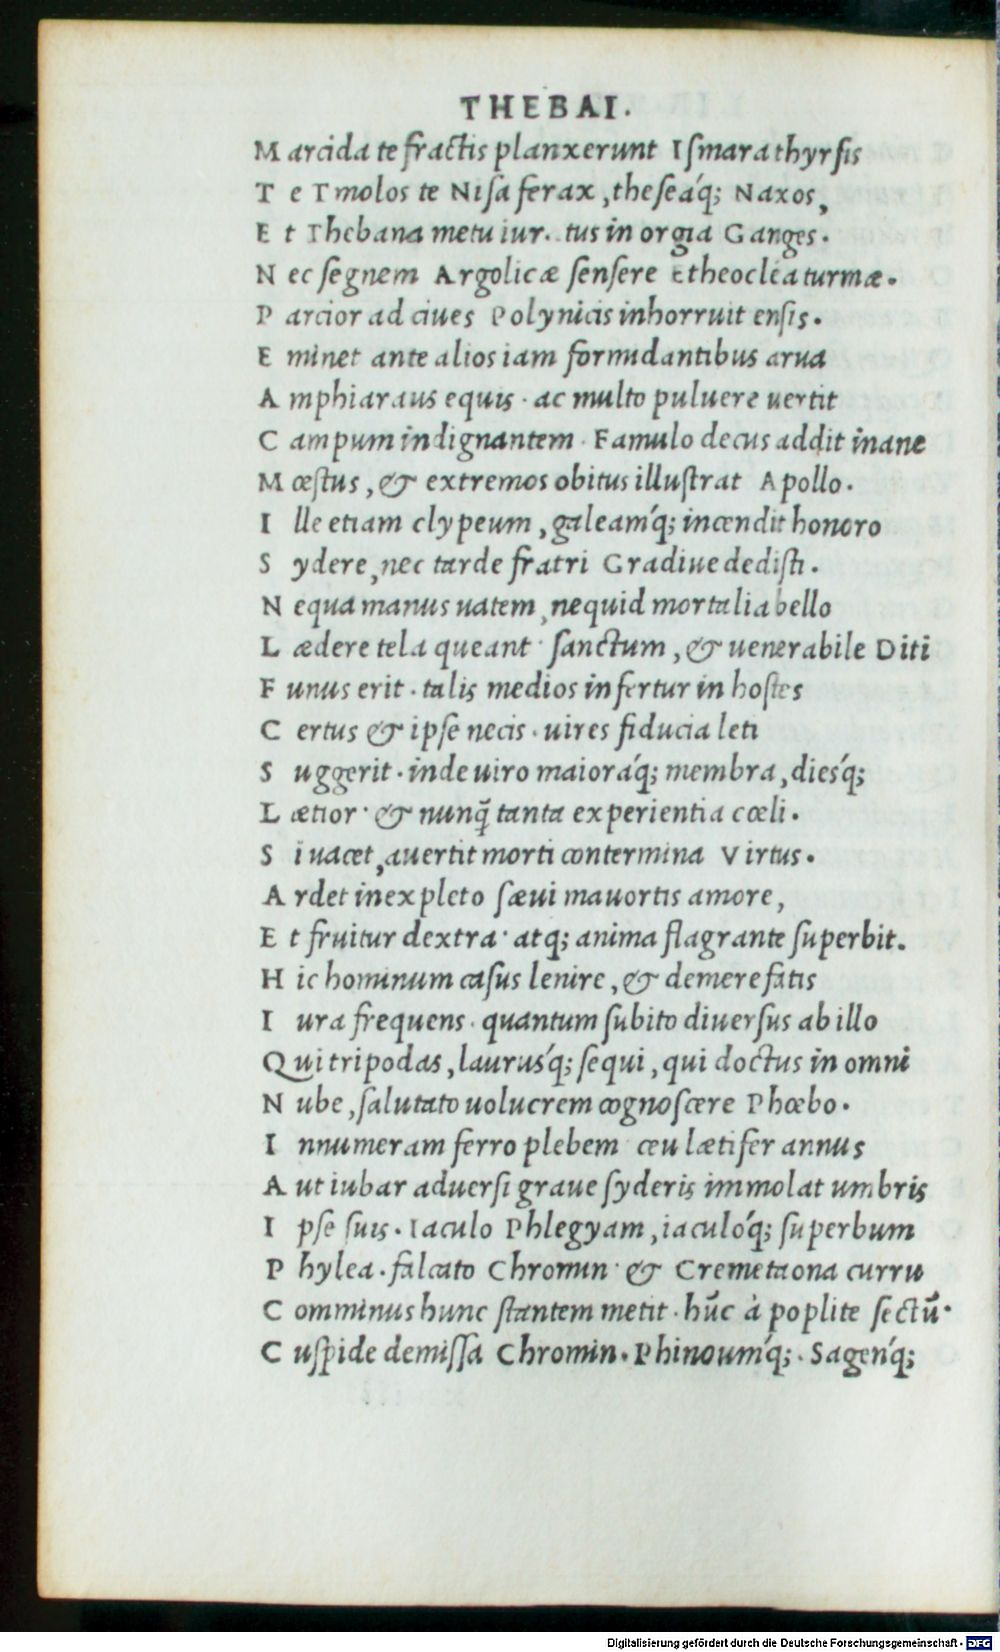 THEBAI.
M arcida te fractis planxerunt Iſmara thyrſis
T e Tmolos te Niſa ferax, theſeáq; Naxos,
E t Thebana metu iur. tus in orgia Ganges.
N ec ſegnem Argolicæ ſenſere Etheoclea turmæ.
P arcior ad ciues Polynicis inhorruit enſis.
E minet ante alios iam formidantibus arua
A mphiaraus equis· ac multo puluere uertit
C ampum indignantem· Famulo decus addit inane
M œſtus, & extremos obitus illuſtrat Apollo.
I lle etiam clypeum, galeamq́; incendit honoro
S ydere, nec tarde fratri Gradiue dediſti.
N equa manus uatem, nequid mortalia bello
L ædere tela queant· ſanctum, & uenerabile Diti
F unus erit· talis medios infertur in hoſtes
C ertus & ipſe necis· uires fiducia leti
S uggerit· inde uiro maioráq; membra, dieſq́;
L ætior· & nunq̃ tanta experientia cœli.
S i uacet, auertit morti contermina Virtus.
A rdet inexpleto ſæui mauortis amore,
E t fruitur dextra· atq; anima flagrante ſuperbit.
H ic hominum caſus lenire, & demere fatis
I ura frequens· quantum ſubito diuerſus ab illo
Q ui tripodas, laurusq́; ſequi, qui doctus in omni
N ube, ſalutato uolucrem cognoſcere Phœbo.
I nnumeram ferro plebem ceu lætifer annus
A ut iubar aduerſi graue ſyderis immolat umbris
I pſe ſuis. Iaculo Phlegyam, iaculóq; ſuperbum
P hylea· falcato Chromin· & Cremetaona curru
C omminus hunc ſtantem metit· hũc à poplite ſectũ·
C uſpide demiſſa Chromin. Phinoumq́;. Sagenq́;
Digitalisierung gefördert durch die Deutsche Forschungsgemeinschaft - DFG